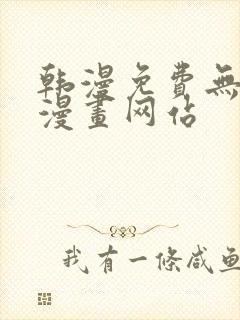 韩漫免费無
漫畫网站
我有一條咸鱼